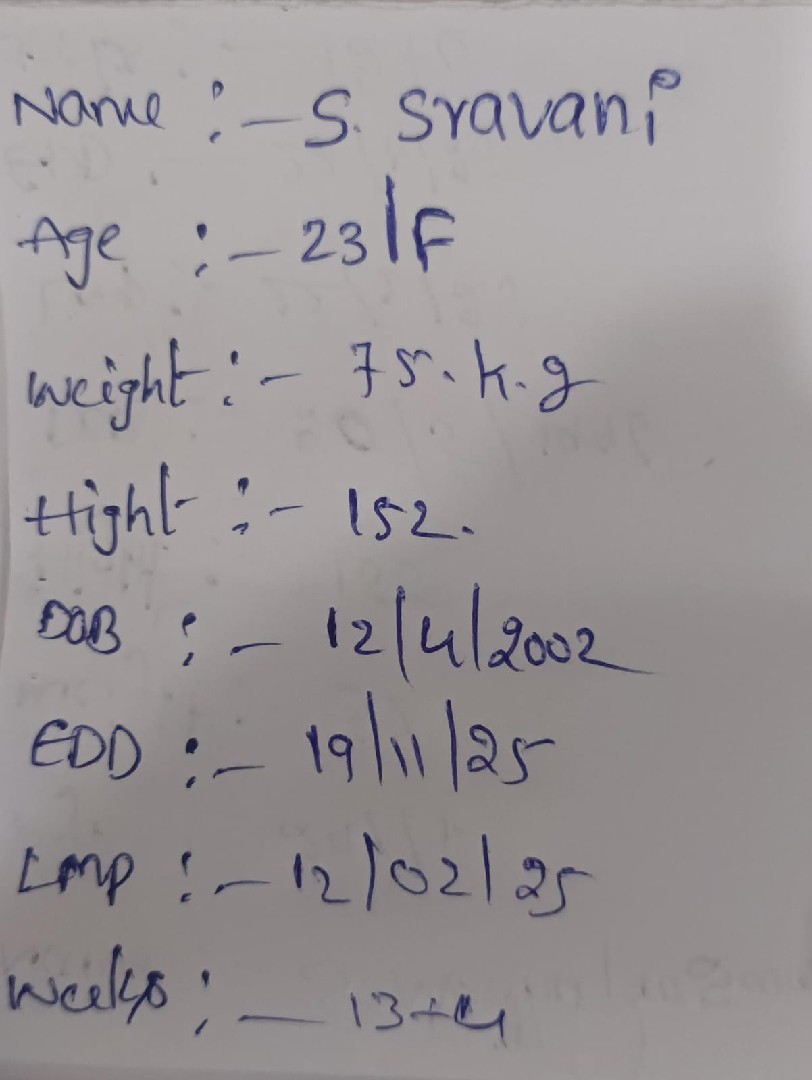 Name :- S. Sravani
Age :- 23/F
Weight :- 75.k.g
Hight :- 152.
DOB :- 12/4/2002
EDD :- 19/11/25
LMP :- 12/02/25
Weeks :- 13+4